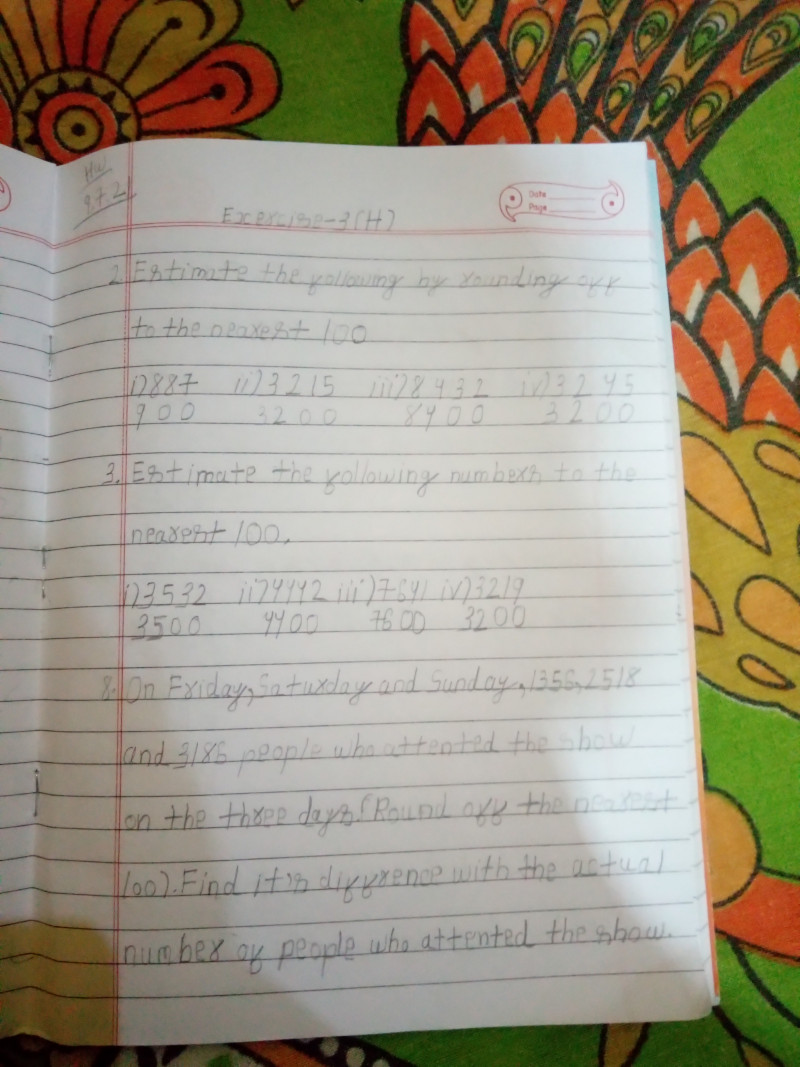 HW
9.7.21
Date
Page
Exercise-3(H)
2. Estimate the following by rounding off
to the nearest 100
i) 887 ii) 3215 iii) 8432 iv) 3245
900 3200 8400 3200
3. Estimate the following numbers to the
nearest 100.
i) 3532 ii) 4442 iii) 7641 iv) 3219
3500 4400 7600 3200
8. On Friday, Saturday and Sunday, 1356, 2518
and 3186 people who attented the show
on the three days. (Round off the nearest
100). Find it's diffrence with the actual
number of people who attented the show.